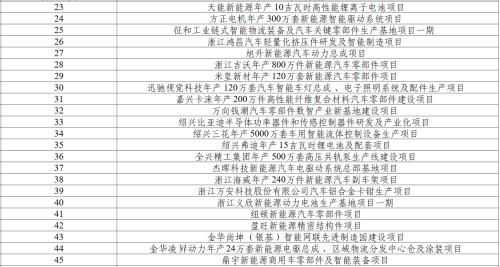 23 天能新能源年产10吉瓦时高性能锂离子电池项目
24 方正电机年产300万套新能源智能驱动系统项目
25 征和工业链式智能物流装备及汽车关键零部件生产基地项目一期
26 浙江鸿昌汽车轻量化挤压件研发及智能制造项目
27 旭升新能源汽车动力总成项目
28 浙江吉沃年产800万件新能源汽车零部件项目
29 米皇新材年产120万套新能源汽车零部件项目
30 迅驰视觉科技年产120万套汽车智能车灯总成、电子照明系统及配件生产项目
31 嘉兴卡涞年产200万件高性能纤维复合材料汽车零部件建设项目
32 万向钱潮汽车零部件数智产业新基地建设项目
33 绍兴比亚迪半导体功率器件和传感控制器件研发及产业化项目
34 绍兴三花年产5000万套车用智能流体控制设备生产项目
35 绍兴弗迪年产15吉瓦时锂电池及配套项目
36 全兴精工集团年产500万套高压共轨泵生产线建设项目
37 杰晖科技新能源汽车电驱动系统总部基地项目
38 浙江海威年产240万件新能源汽车副车架项目
39 浙江万安科技股份有限公司汽车铝合金卡钳生产项目
40 浙江义欣新能源动力电池生产基地项目一期
41 纽顿新能源汽车零部件项目
42 盈旺新能源精密结构件项目
43 金华尚坤（银基）智能网联先进制造园建设项目
44 金华凌昇动力年产24万套新能源电驱总成、区域物流分发中心仓及涂装项目
45 鼎宇新能源商用车零部件及智能装备项目